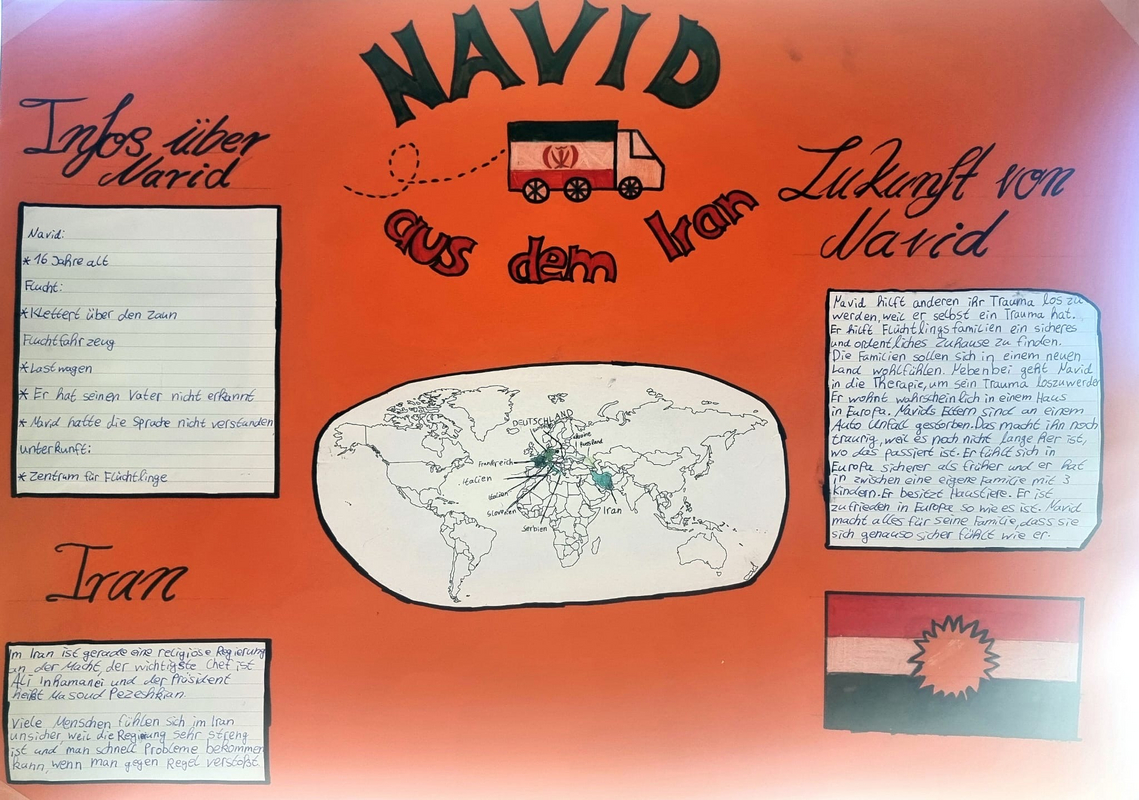 NAVID
aus dem Iran
Infos über
Navid
Navid:
* 16 Jahre alt
Flucht:
* Klettert über den Zaun
Fluchtfahrzeug
* Lastwagen
* Er hat seinen Vater nicht erkannt
* Navid hatte die Sprache nicht verstanden
unterkunft:
* Zentrum für Flüchtlinge
Iran
Im Iran ist gerade eine religiöse Regierung
an der Macht, der wichtigste Chef ist
Ali Inhamanei und der Präsident
heißt Masoud Pezeshkian.
Viele Menschen fühlen sich im Iran
unsicher, weil die Regierung sehr streng
ist und man schnell Probleme bekommen
kann, wenn man gegen Regel verstößt.
DEUTSCHLAND
Ukraine
Russland
Frankreich
Italien
Italien
Slovenien
Serbien
Iran
Zukunft von
Navid
Navid hilft anderen ihr Trauma los zu
werden, weil er selbst ein Trauma hat.
Er hilft Flüchtlingsfamilien ein sicheres
und ordentliches Zuhause zu finden.
Die Familien sollen sich in einem neuen
Land wohlfühlen. Nebenbei geht Navid
in die Therapie, um sein Trauma loszuwerden
Er wohnt wahrscheinlich in einem Haus
in Europa. Navids Eltern sind an einem
Auto Unfall gestorben. Das macht ihn noch
traurig, weil es noch nicht lange her ist,
wo das passiert ist. Er fühlt sich in
Europa sicherer als früher und er hat
in zwischen eine eigere Familie mit 3
Kindern. Er besitzt Haustiere. Er ist
zufrieden in Europa so wie es ist. Navid
macht alles für seine Familie, dass sie
sich genauso sicher fühlt wie er.